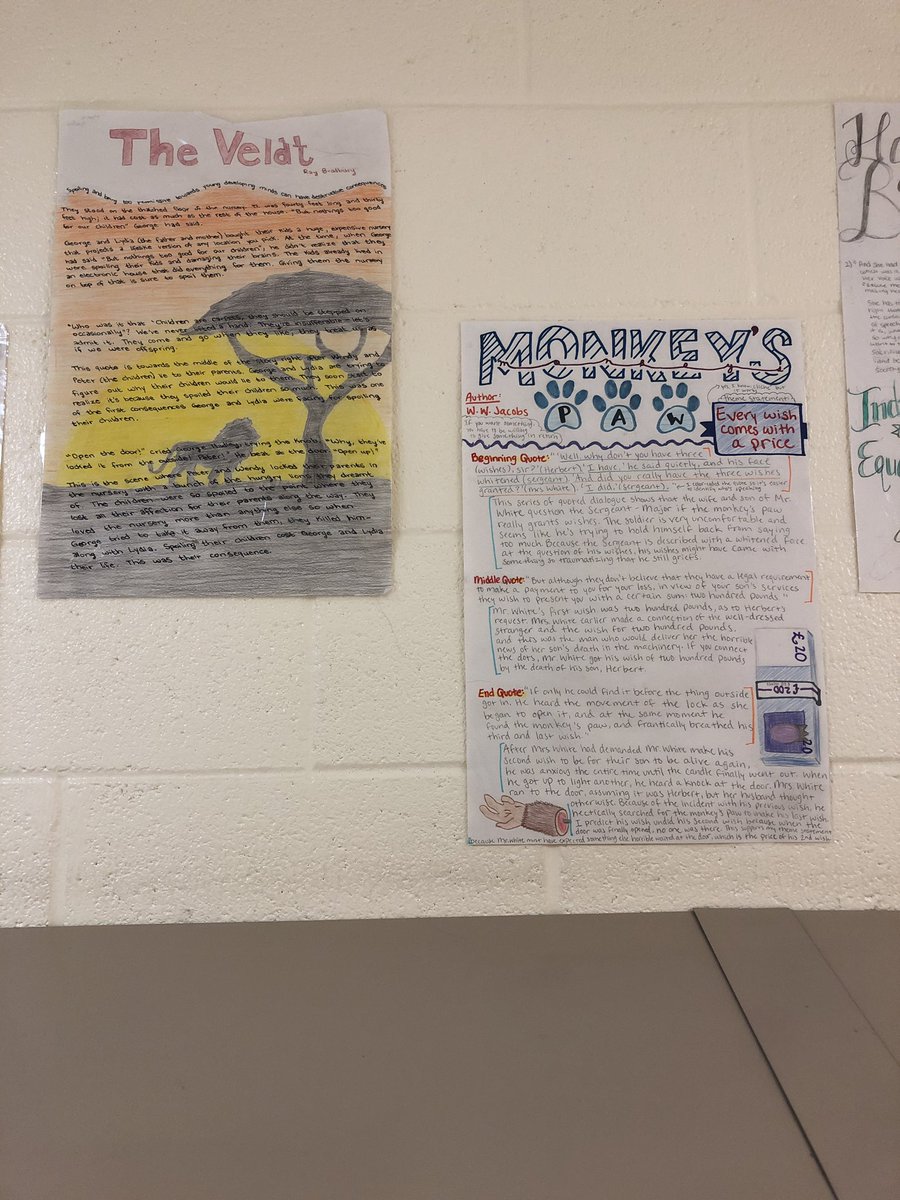 The Veldt
Ray Bradbury
Spoiling and being too permissive towards young developing minds can have destructive consequences
They stood on the thatched floor of the nursery. It was fourty feet long and thirty
feet high; it had cost as much as the rest of the house. "But nothings too good
for our children" George had said.
George and Lydia (the father and mother) bought their kids a huge, expensive nursery
that projects a lifelike version of any location you pick. At the time, when George
had said "But nothings too good for our children", he didn't realize that they
were spoiling their kids and damaging their brains. The kids already lived in
an electronic house that did everything for them. Giving them the nursery
on top of that is sure to spoil them.
"Who was it that "Children are carpets, they should be stepped on
occasionally"? We've never lifted a hand. They're insufferable - let's
admit it. They come and go when they like; they treat us as
if we were offspring.
This quote is towards the middle of the story right after Wendy and
Peter (the children) lie to their parents. George and Lydia are trying to
figure out why their children would lie to them. They soon start to
realize it's because they spoiled their children so much. This was one
of the first consequences George and Lydia were facing for spoiling
their children.
"Open the door!" cried George Hadley, trying the knob. "Why, they've
locked it from the outside! Peter!" He beat at the door. "Open up!"
This is the scene where Peter and Wendy locked their parents in
the nursery with a bunch of the hungry lions they dreamt
of. The children were so spoiled to the point where they
lost all their affection for their parents along the way. They
loved the nursery more than anything else so when
George tried to take it away from them, they killed him
along with Lydia. Spoiling their children cost George and Lydia
their life. This was their consequence.
MONKEY'S
PAW
Author:
W.W. Jacobs
If you want something,
you have to be willing
to give something in return
yes, I know, cliche but
it works
theme statement
Every wish
comes with
a price
Beginning Quote: "Well, why don't you have three
(wishes), sir?" (Herbert) "I have," he said quietly, and his face
whitened (sergeant). "And did you really have the three wishes
granted?" (Mrs White). "I did." (Sergeant). I color-coded the quote so it's easier
to identify who's speaking
This series of quoted dialogue shows that the wife and son of Mr.
White question the Sergeant-Major if the monkey's paw
really grants wishes. The soldier is very uncomfortable and
seems like he's trying to hold himself back from saying
too much. Because the Sergeant is described with a whitened face
at the question of his wishes, his wishes might have came with
something so traumatizing that he still griefs.
Middle Quote: "But although they don't believe that they have a legal requirement
to make a payment to you for your loss, in view of your son's services
they wish to present you with a certain sum: two hundred pounds."
Mr. White's first wish was two hundred pounds, as to Herbert's
request. Mrs. White earlier made a connection of the well-dressed
stranger and the wish for two hundred pounds,
and this was the man who would deliver her the horrible
news of her son's death in the machinery. If you connect
the dots, Mr. White got his wish of two hundred pounds
by the death of his son, Herbert.
£20
£200
20
End Quote: "If only he could find it before the thing outside
got in. He heard the movement of the lock as she
began to open it, and at the same moment he
found the monkey's paw, and frantically breathed his
third and last wish."
After Mrs White had demanded Mr. White make his
second wish to be for their son to be alive again,
he was anxious the entire time until the candle finally went out. When
he got up to light another, he heard a knock at the door. Mrs White
ran to the door, assuming it was Herbert, but her husband thought
otherwise. Because of the incident with his previous wish, he
hectically searched for the monkey's paw to make his last wish.
I predict his wish undid his second wish because when the
door was finally opened, no one was there. This supports my theme statement
because Mr. White must have expected something else horrible waited at the door, which is the price of his 2nd wish